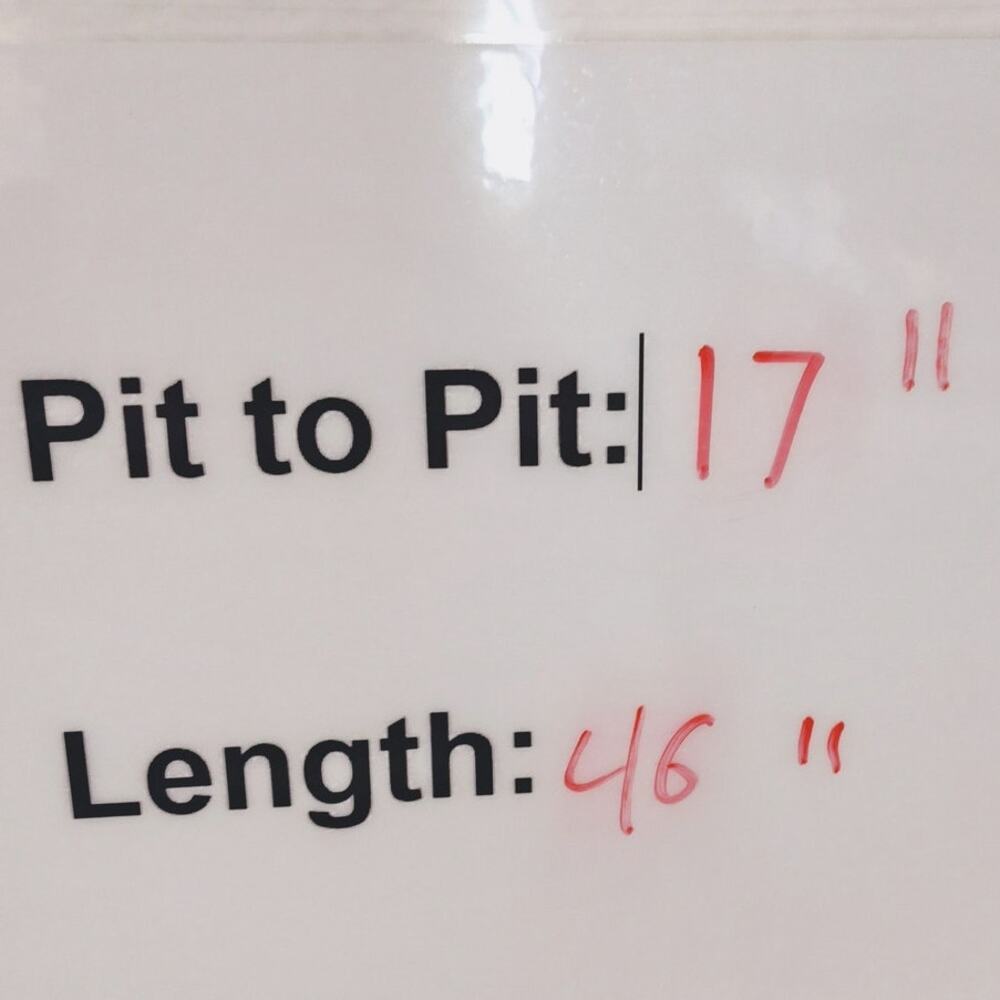 Pit to Pit: 17 "
Length: 46 "